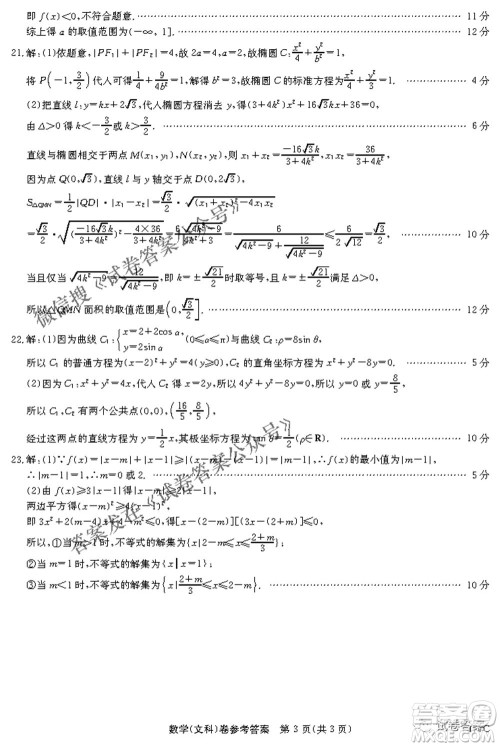 即 f(x)<0, 不符合题意. 11 分
综上得 a 的取值范围为(-∞, 1]. 12 分
21.解:(1)依题意, |PF₁|+|PF₂|=4, 故 2a=4, a=2, 故椭圆 C: x²/4+y²/b²=1,
将 P(-1, 3/2) 代人可得 1/4+9/(4b²)=1, 解得 b²=3, 故椭圆 C 的标准方程为 x²/4+y²/3=1. 4 分
(2)把直线 l: y=kx+2√3, 代人椭圆方程消去 y, 得(3+4k²)x²+16√3kx+36=0,
由 Δ>0 得 k<-3/2 或 k>3/2. 6 分
直线与椭圆相交于两点 M(x₁,y₁), N(x₂,y₂), 则 x₁+x₂=-16√3k/(3+4k²), x₁x₂=36/(3+4k²)
因为点 Q(0,√3), 直线 l 与 y 轴交于点 D(0,2√3),
S△QMN=1/2|QD|·|x₁-x₂|=√3/2·√((x₁+x₂)²-4x₁x₂)
=√3/2·√((-16√3k/(3+4k²))²-4×36/(3+4k²))
≤6/√12=√3/2, 10 分
当且仅当 √(4k²-9)=12/√(4k²-9), 即 k=±√21/2 时取等号, k=±√21/2 满足 Δ>0,
所以△QMN 面积的取值范围是(0, √3/2]. 12 分
22.解:(1)因为曲线 C₁: {x=2+2cos α, y=2sin α, (0≤α≤π)与曲线 C₂: ρ=8sin θ,
所以 C₁ 的普通方程为(x-2)²+y²=4, C₂ 的直角坐标方程为 x²+y²-8y=0. 5 分
(2)因为 C₁: x²+y²=4x 代人 C₂ 得 x²+y²-8y=0,
所以 C₁,C₂ 有两个公共点(0,0), (16/5, 8/5),
经过这两点的直线方程为 y=1/2x, 其极坐标方程为 tan θ=1/2(ρ∈R). 10 分
23.解:(1)∵f(x)=|x-m|+|x-1|≥|(x-m)-(x-1)|=|m-1|, ∴f(x)的最小值为|m-1|,
∴|m-1|=1, 所以 m=0 或 2. 5 分
两边平方得(x-m)²≥4(x-1)².
所以, ①当 m>1 时, 不等式的解集为{x|2-m≤x≤(2+m)/3};
②当 m=1 时, 不等式的解集为{x|x=1};
③当 m<1 时, 不等式的解集为{x|(2+m)/3≤x≤2-m}. 10 分
微信搜《试卷答案公众号》
答案发在《试卷答案公众号》
数学(文科)卷参考答案 第 3 页(共 3 页)